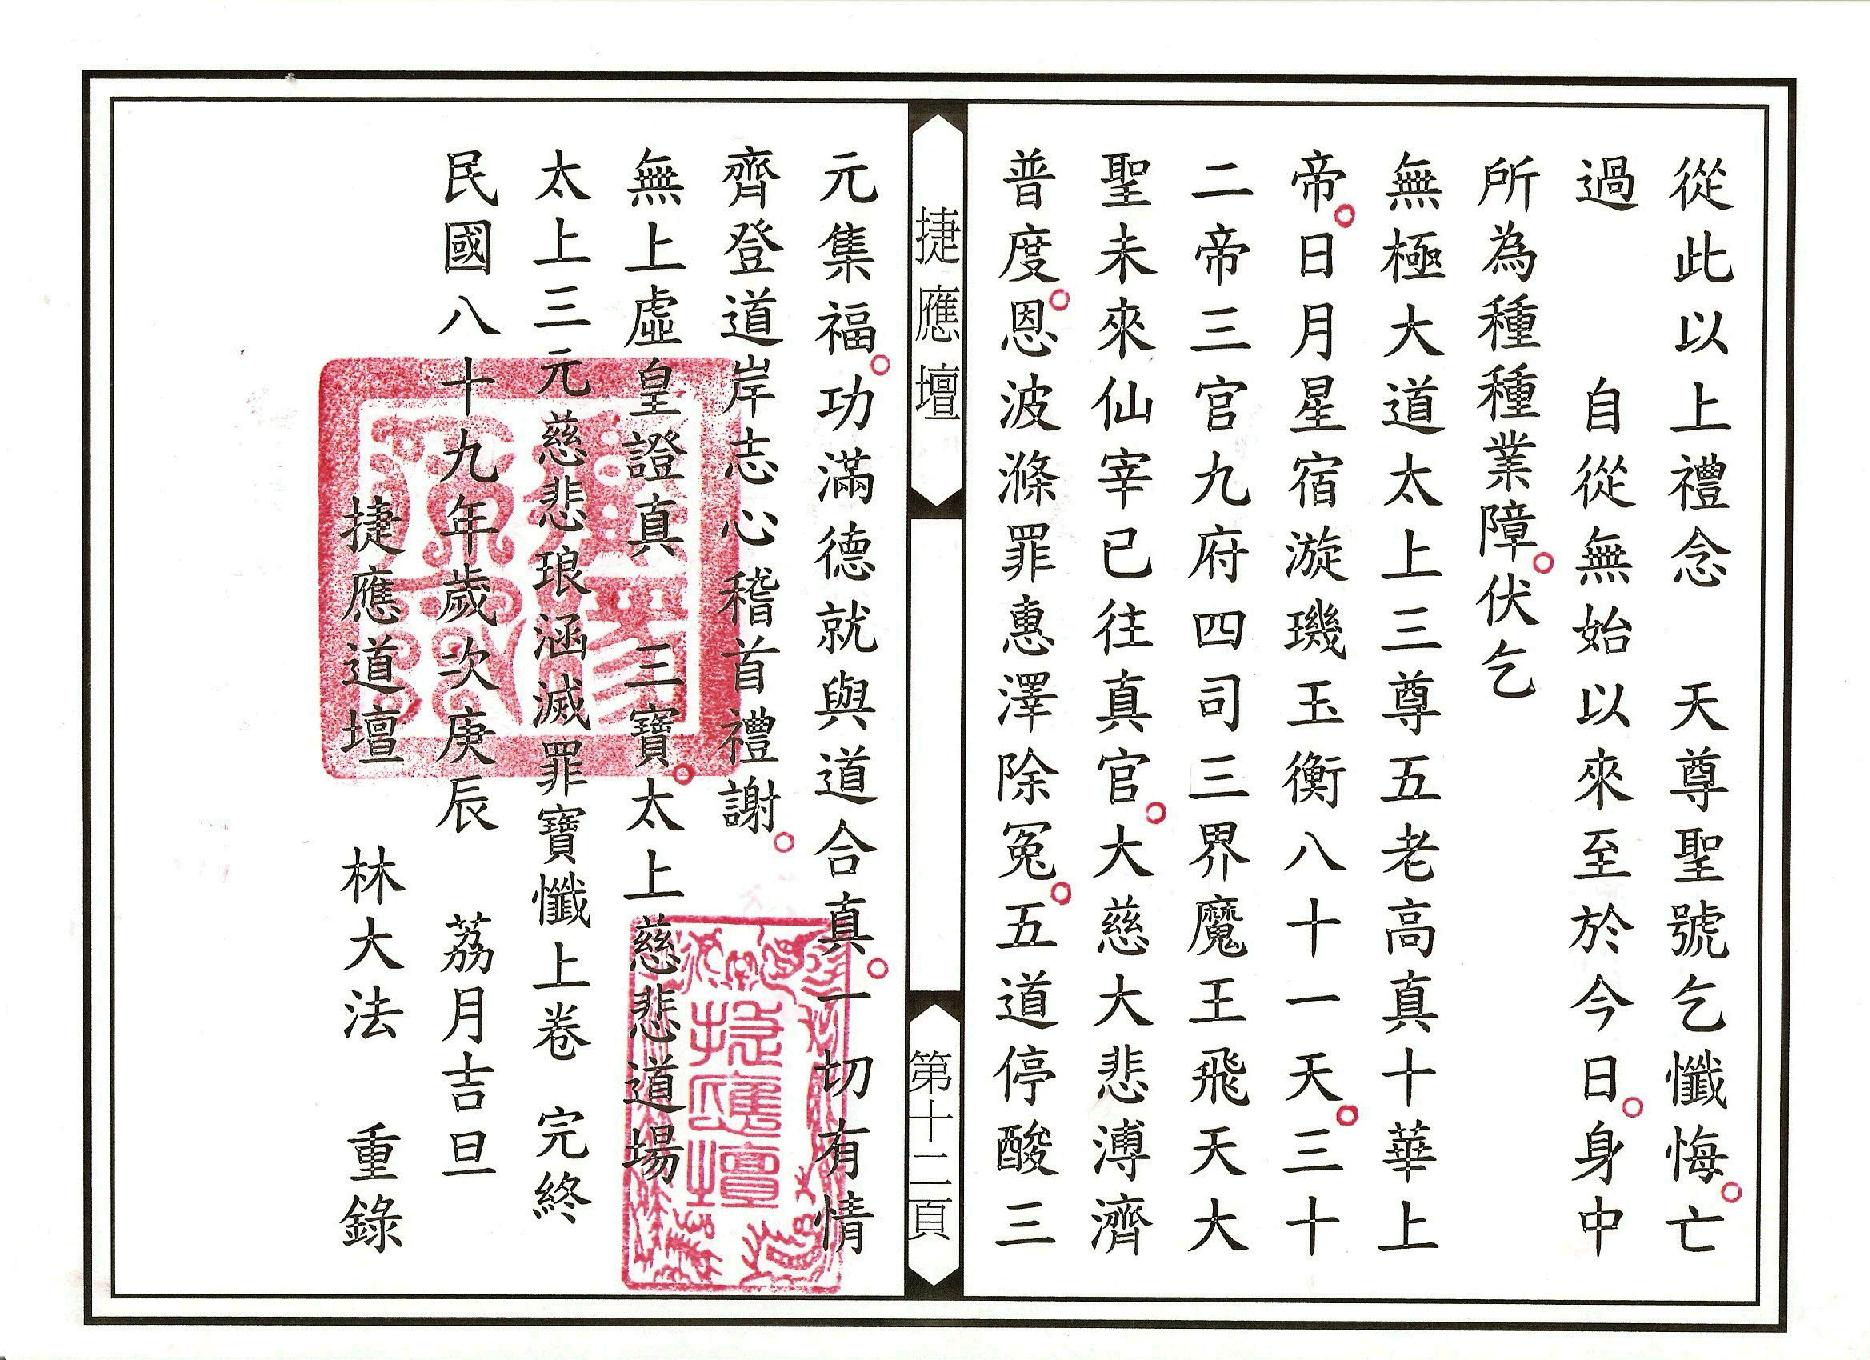 從此以上禮念　天尊聖號乞懺悔。亡
過　　自從無始以來至於今日。身中
所為種種業障。伏乞
無極大道太上三尊五老高真十華上
帝。日月星宿漩璣玉衡八十一天。三十
二帝三官九府四司三界魔王飛天大
聖未來仙宰已往真官。大慈大悲溥濟
普度。恩波滌罪惠澤除冤。五道停酸三
捷應壇
第十二頁
元集福。功滿德就與道合真。一切有情
齊登道岸志心稽首禮謝。
無上虛皇證真　三寶。太上慈悲道場
太上三元慈悲琅涵滅罪寶懺上卷　完終
民國八十九年歲次庚辰　荔月吉旦
捷應道壇　林大法　重錄
捷應壇